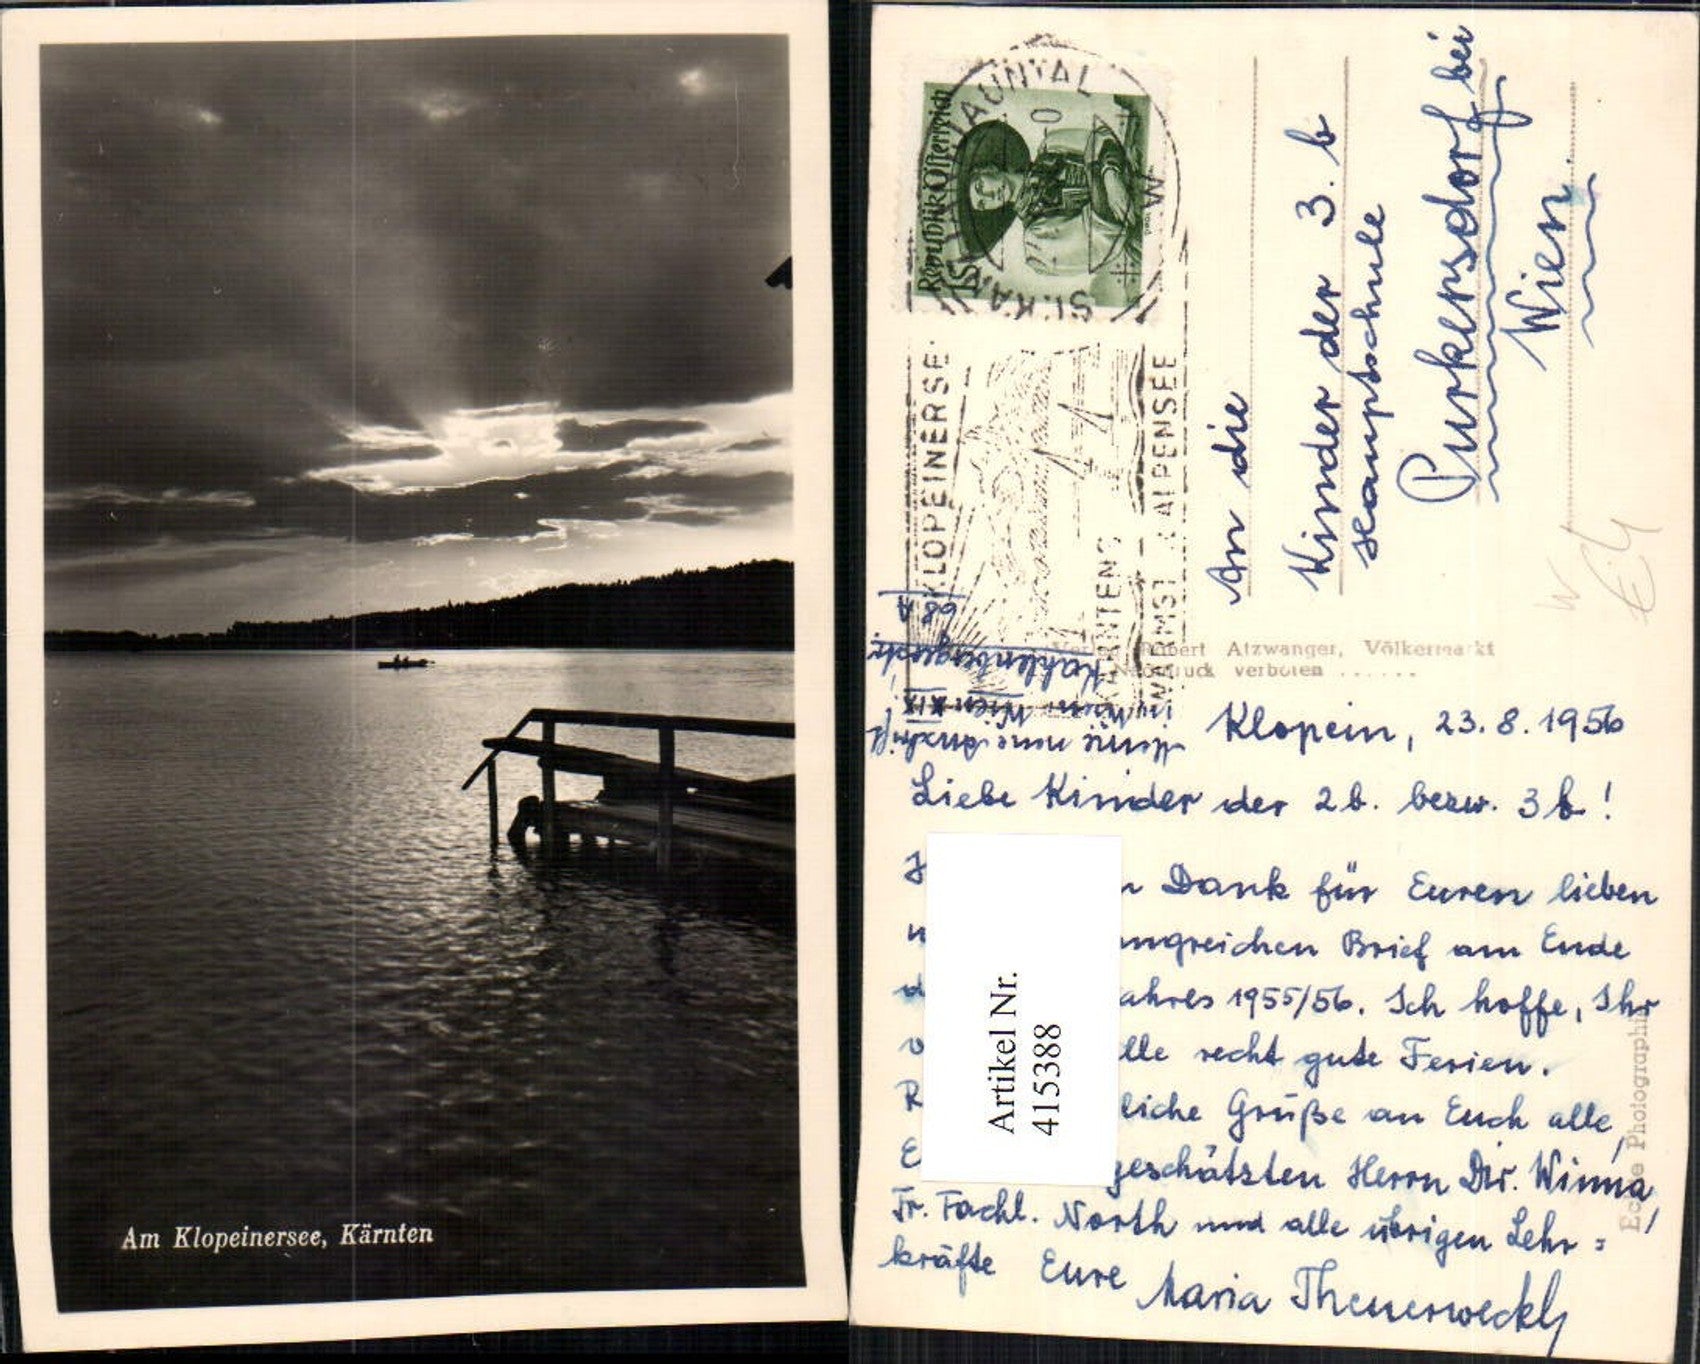 Am Klopeinersee, Kärnten
Republik Österreich
1S
ST. KANZIAN
JAUNTAL
KLOPEINERSEE
KÄRNTENS
WÄRMSTER ALPENSEE
An die
Kinder der 3. b
Hauptschule
Purkersdorf bei
Wien.
Verlag Robert Atzwanger, Völkermarkt
Nachdruck verboten ......
Meine neue Anschrift
in Wien: Wien XIX.
Kahlenbergerstr.
68 A
Klopein, 23.8.1956
Liebe Kinder der 2b. bezw. 3b!
Dank für Euren lieben
ngreichen Brief am Ende
ahres 1955/56. Ich hoffe, Ihr
lle recht gute Ferien.
liche Grüße an Euch alle,
E geschätzten Herrn Dir. Winna,
Fr. Fachl. North und alle übrigen Lehr=
kräfte Eure Maria Theuerweckl
Echte Photographie
Artikel Nr.
415388